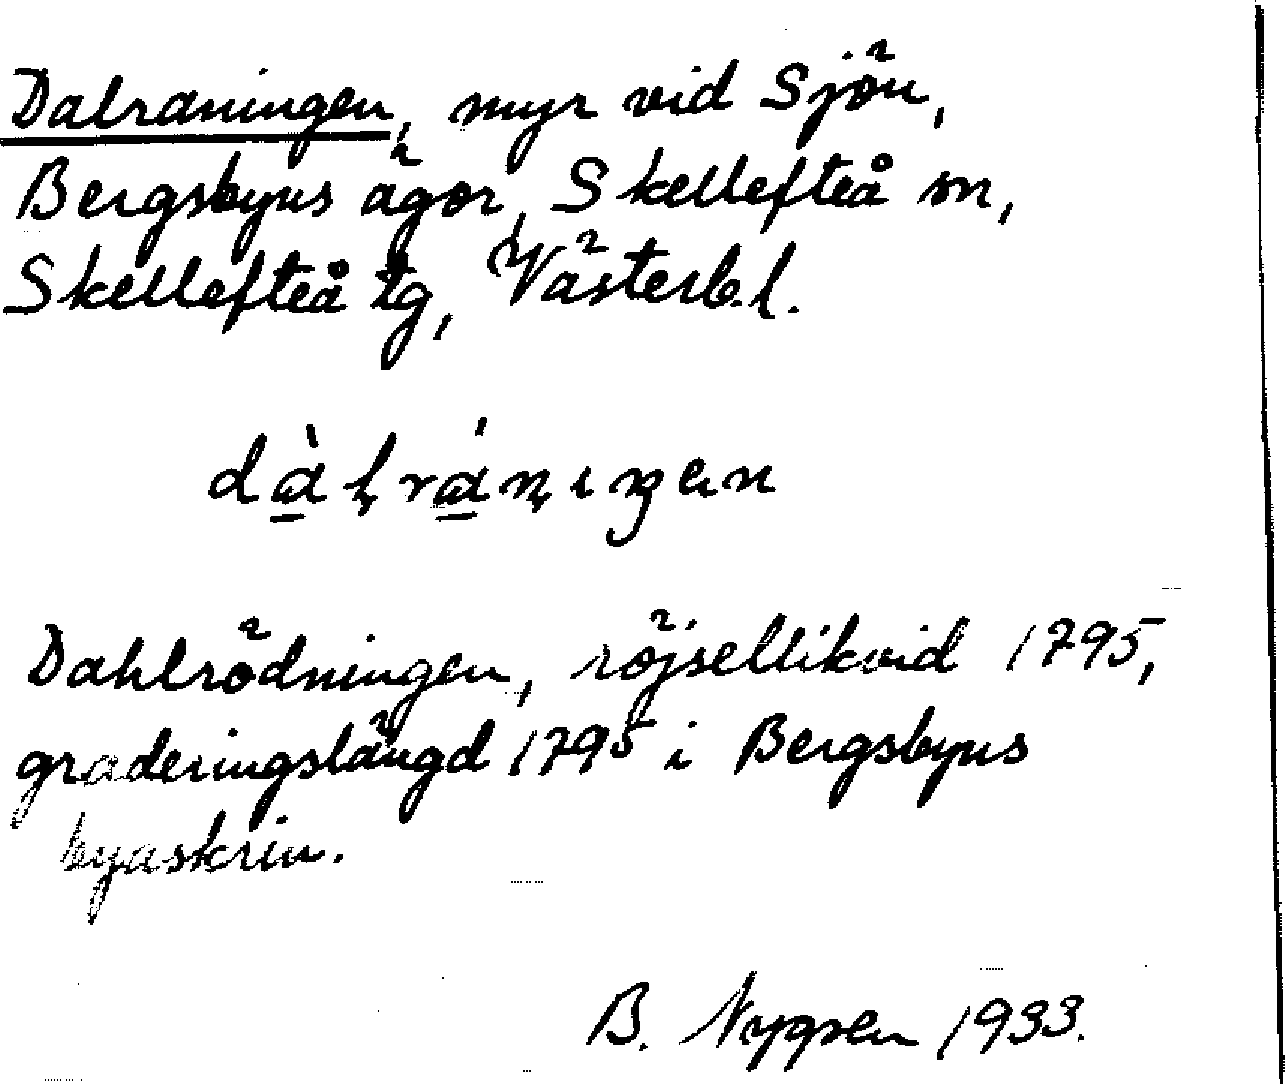 Dalraningen, myr vid Sjön,
Bergsbyns ägor, Skellefteå sn,
Skellefteå tg, Västerb. l.
dà̱ḷrá̱ṇıŋen
Dahlrödningen, röjsellikvid 1795,
graderingslängd 1795 i Bergsbyns
byaskrin.
B. Nygren 1933.